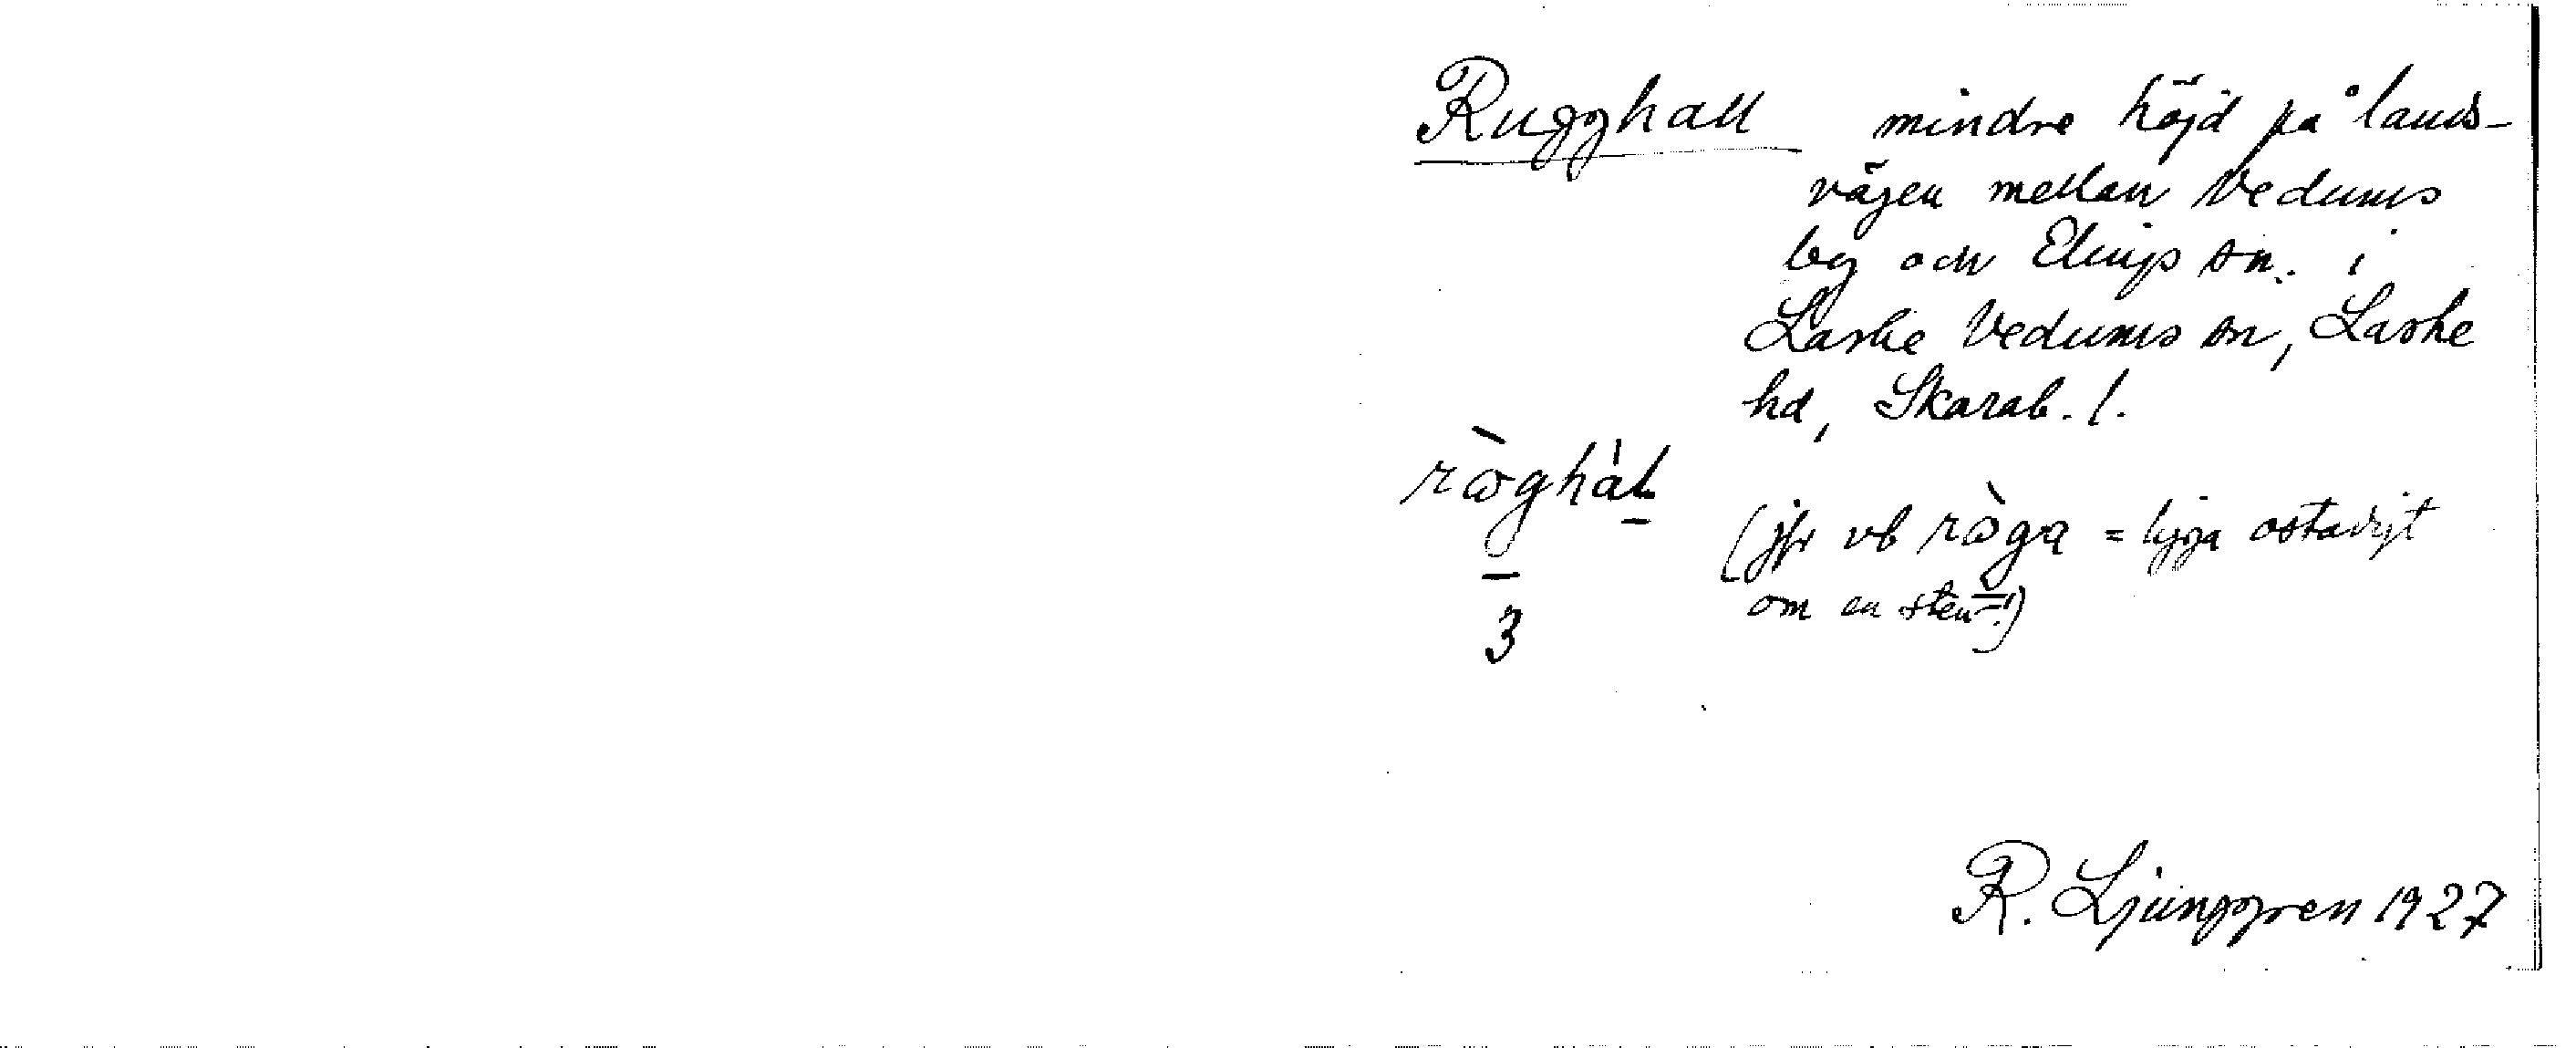 Rugghall mindre höjd på lands-
vägen mellan Vedums
by och Elings sn. i
Laske Vedums sn, Laske
hd, Skarab. l.
ròghàl
3
(jfr vb ròga = ligga ostadigt
om en sten!)
R. Ljunggren 1927